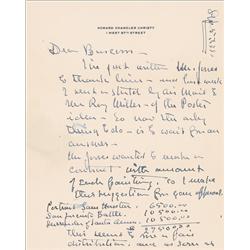 HOWARD CHANDLER CHRISTY
1 WEST 67TH STREET
Dear Burgess
I've just written Mr Jones
to thank him - and last week
I sent a sketch by air mail to
Mr Roy Miller - of the Poster
idea - so now the only
thing to do - is to wait for an
answer -
Mr Jones wanted to make a
contract with amount
of each painting, so I make
this suggestion for your approval.
Portrait Sam Houston 6500.00
San Jacinto Battle. 10 500.00
Surrender of Santa Anna. 10 500.00
$27 500.00
This seems to me a fair
distribution, and as soon as